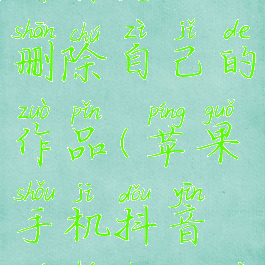 shān chú zì jǐ de
删除自己的
zuò pǐn píng guǒ
作品(苹果
shǒu jī dǒu yīn
手机抖音